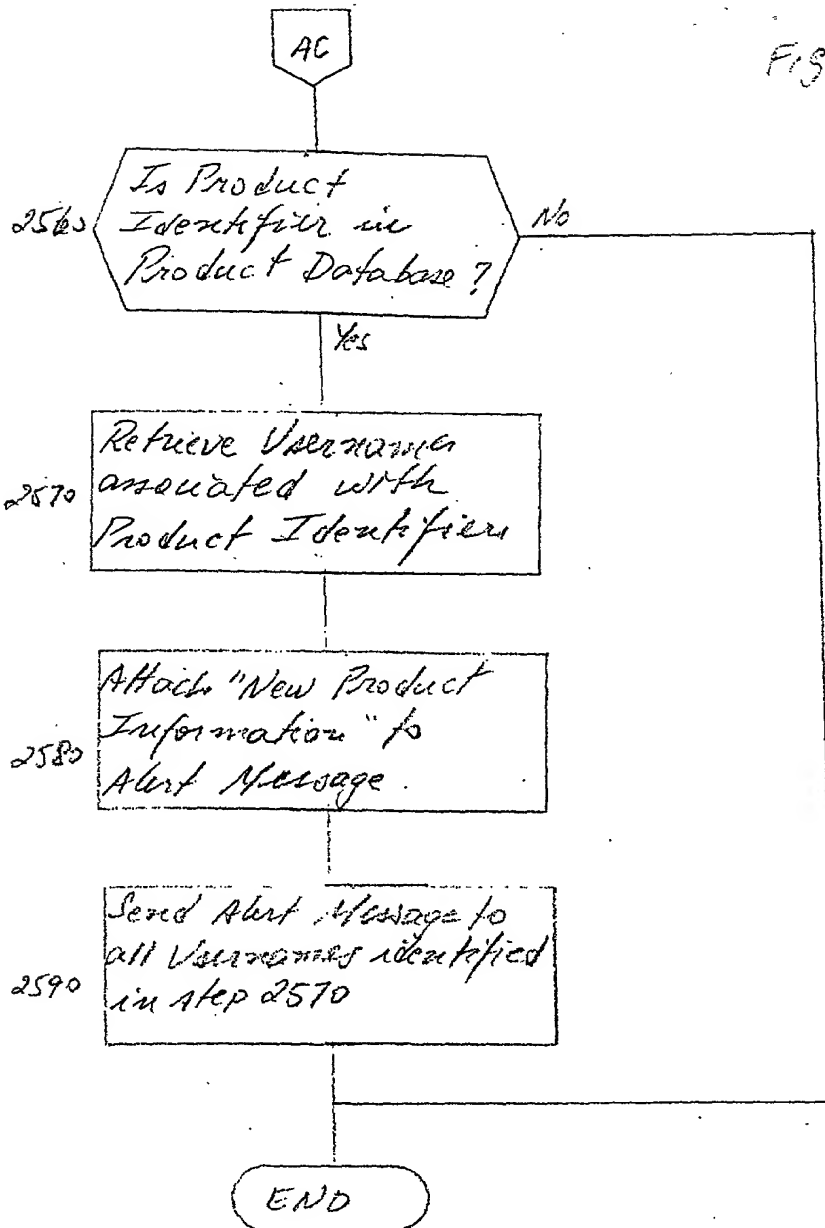 AC
Fig
Is Product
2560
Identifier in
No
Product Database?
Yes
Retrieve Usernames
2570
associated with
Product Identifiers
Attach "New Product
Information" to
2580
Alert Message.
Send Alert Message to
all Usernames identified
2590
in step 2570
END